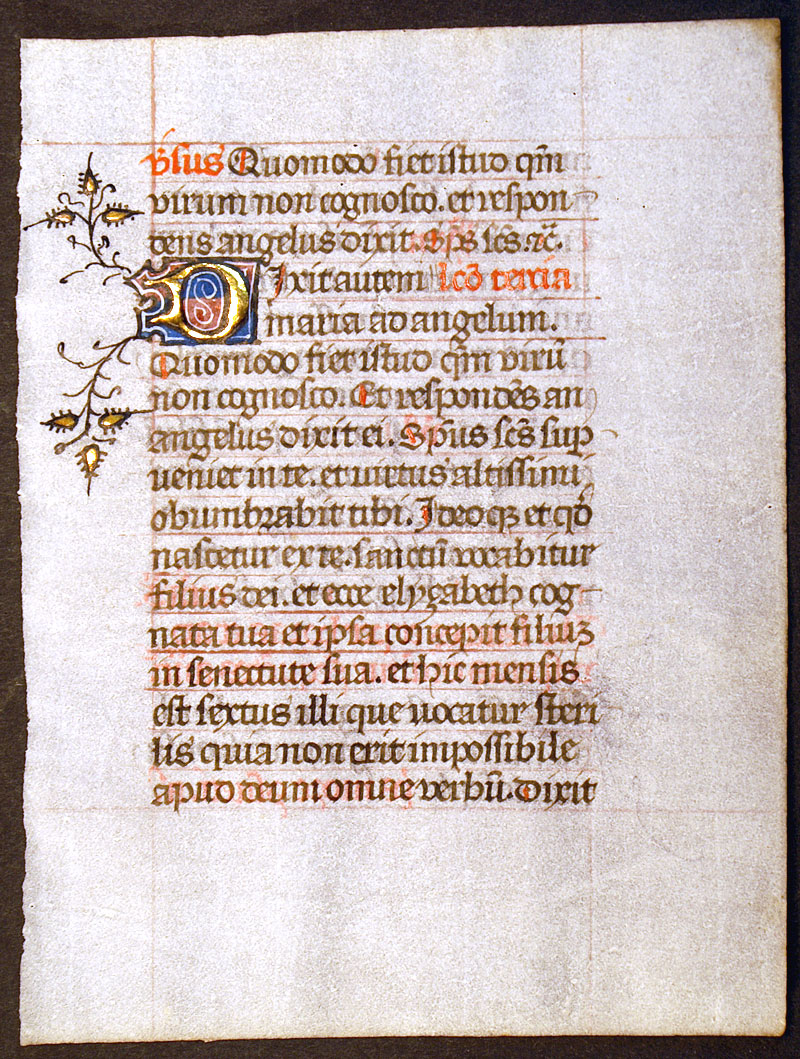 v̄sus Quomodo fiet istud qm̄
virum non cognosco. et respon-
dens angelus dixit. Sp̄s sc̄s. ⁊c̄.
Dixit autem lcō tercia
maria ad angelum.
Quomodo fiet istud qm̄ virū
non cognosco. Et respondēs an
angelus dixit ei. Sp̄us sc̄s sup
veniet in te. et virtus altissimi
obumbrabit tibi. Ideoqꝫ et qd̄
nascetur ex te. sanctū vocabitur
filius dei. et ecce elyzabeth cog-
nata tua et ipsa concepit filiuꝫ
in senectute sua. et hic mensis
est sextus illi que vocatur steri
lis quia non erit impossibile
apud deum omne verbū. dixit